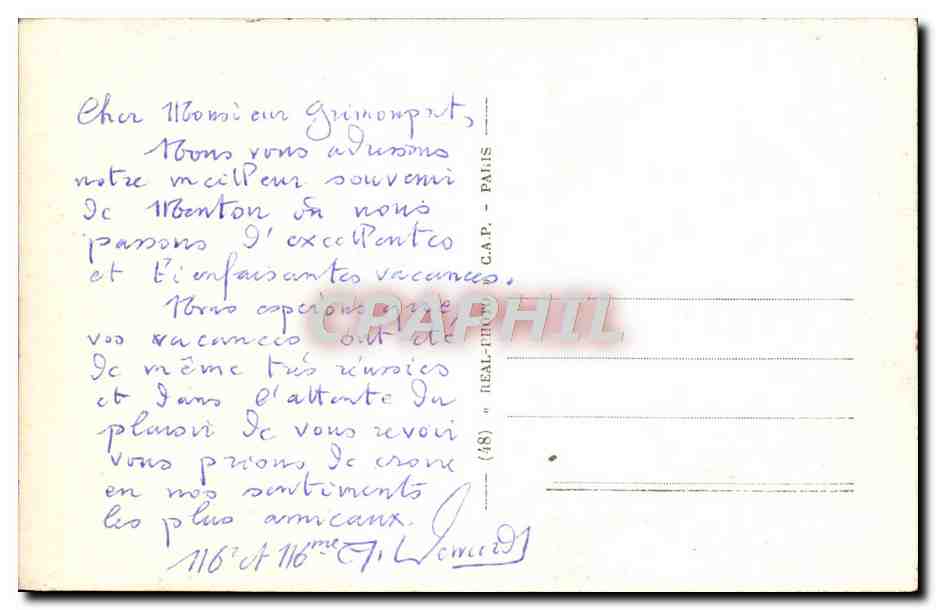 Cher Monsieur Grimonprt,
Nous vous adressons
notre meilleur souvenir
de Menton où nous
passons d'excellentes
et bienfaisantes vacances.
Nous espérons que
vos vacances ont été
de même très réussies
et dans l'attente du
plaisir de vous revoir
vous prions de croire
en nos sentiments
les plus amicaux.
et
CPAPHIL
(48) " REAL-PHOTO " C.A.P. - PARIS